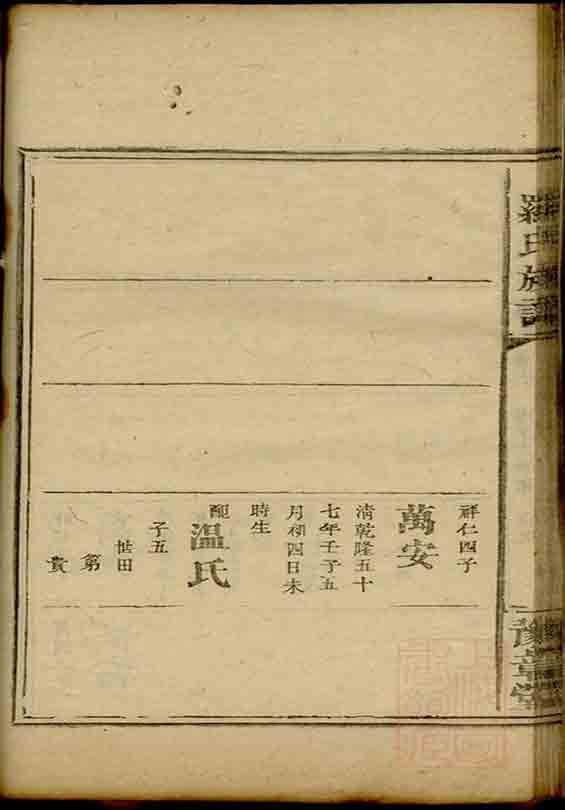 羅氏族譜
豫章堂
祥仁四子
萬安
清乾隆五十
七年壬子五
月初四日未
時生
配溫氏
子五
世田
第
貴